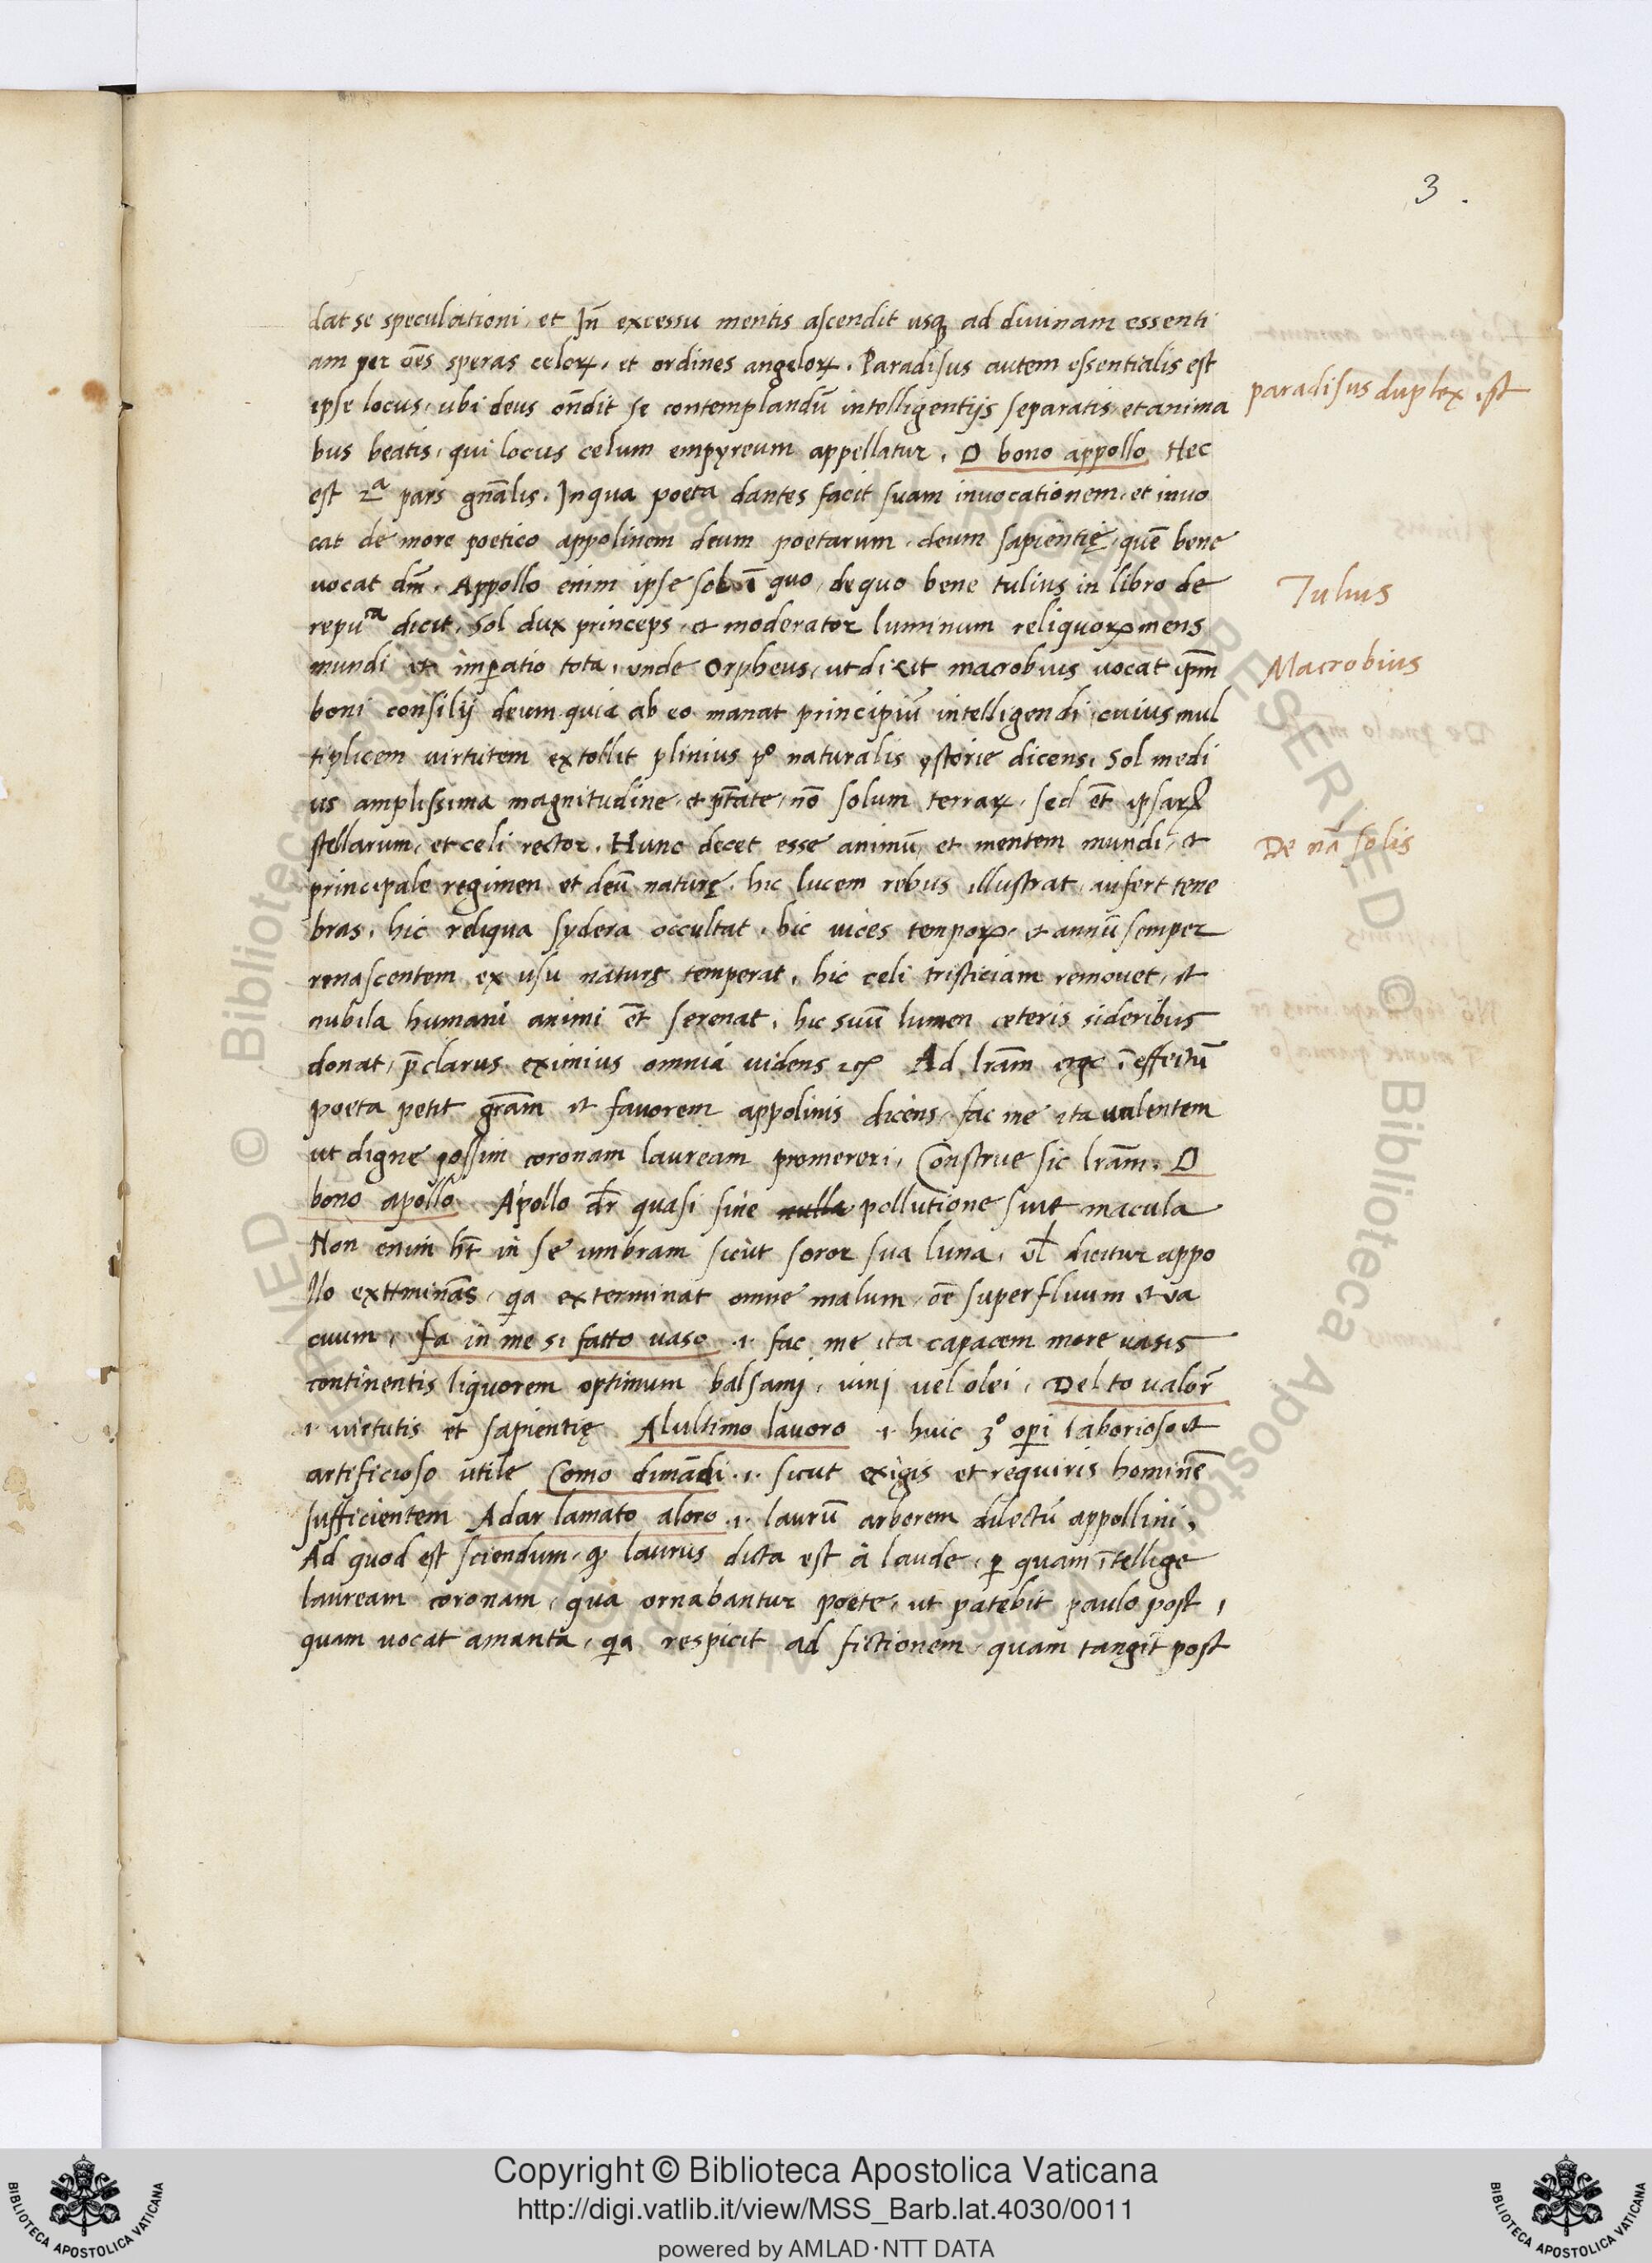 3.
dat se speculationi, et Iñ excessu mentis ascendit usq; ad diuinam essenti
am per oẽs speras celoꝝ, et ordines angeloꝝ. Paradisus autem essentialis est
paradisus duplex est
ipse locus, ubi deus oñdit se contemplandũ intelligentijs separatis, et anima
bus beatis, qui locus celum empyreum appellatur. O bono appollo Hec
est 2ª pars gñalis. In qua poeta dantes facit suam inuocationem, et inuo
cat de more poetico appolinem deum poetarum, deum sapientię, quẽ bene
uocat dñm. Appollo enim ipse sol ĩ quo, de quo bene tulius in libro de
Tulius
repuᶜᵃ dicit, Sol dux princeps, et moderator luminum reliquoꝝ mens
mundi et imꝑatio tota, unde Orpheus, ut dicit macrobius uocat ip̃m
Macrobius
boni consilij deum quia ab eo manat principiũ intelligendi, cuius mul
tiplicem uirtutem extollit plinius pº naturalis ystorie dicens. Sol medi
us amplissima magnitudine, et pt̃ate, nõ solum terraꝝ, sed et̃ ipsaꝝ
stellarum, et celi rector. Hunc decet esse animũ, et mentem mundi, et
De nã solis
principale regimen et deũ naturę, hic lucem rebus illustrat, aufert tene
bras, hic reliqua sydera occultat, hic uices tempoꝝ, et annũ semper
renascentem ex usu naturę temperat, hic celi tristiciam remouet, et
nubila humani animi et̃ serenat, hic suũ lumen ceteris sideribus
donat, p̃clarus eximius omnia uidens &c. Ad lr̃am ergo ĩ effectũ
poeta petit gr̃am et fauorem appolinis dicens, fac me ita ualentem
ut digne possim coronam lauream promereri, Construe sic lr̃am. O
bono apollo Apollo dr̃ quasi sine nulla pollutione siue macula
Non enim ht̃ in se umbram sicut soror sua luna, ul̃ dicitur appo
llo extt̃minãs, qa exterminat omne malum, oẽ superfluum et ua
cuum, fa in me si fatto uaso .i. fac me ita capacem more uasis
continentis liquorem optimum balsamj, uinj uel olei, Del to ualor̃
.i. uirtutis et sapientię Alultimo lauoro .i. huic 3º oꝑi laborioso et
artificioso utile Como dimãdi .i. sicut exigis et requiris hominẽ
sufficientem Adar lamato aloro .i. laurũ arborem dilectũ appollini,
Ad quod est sciendum, ꝙ laurus dicta est à laude, ꝑ quam ĩtellige
lauream coronam, qua ornabantur poete, ut patebit paulo post,
quam uocat amanta, qa respicit ad fictionem, quam tangit post
Copyright © Biblioteca Apostolica Vaticana
http://digi.vatlib.it/view/MSS_Barb.lat.4030/0011
powered by AMLAD·NTT DATA
BIBLIOTECA APOSTOLICA VATICANA
BIBLIOTECA APOSTOLICA VATICANA